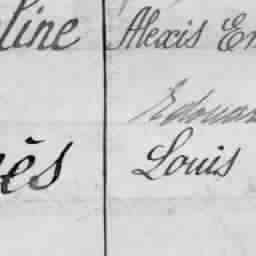 line Alexis Em
Edouar
ès Louis